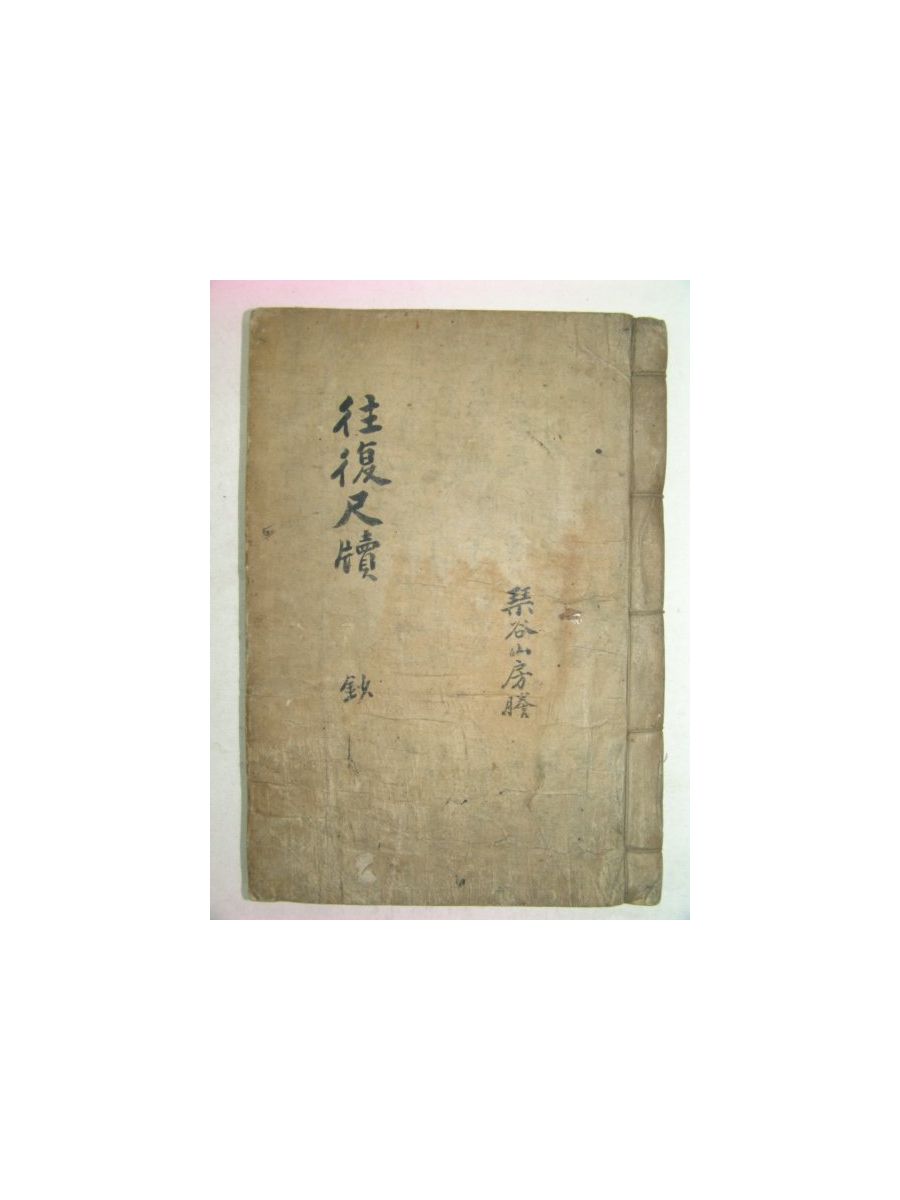 琹谷山房謄
往復尺牘